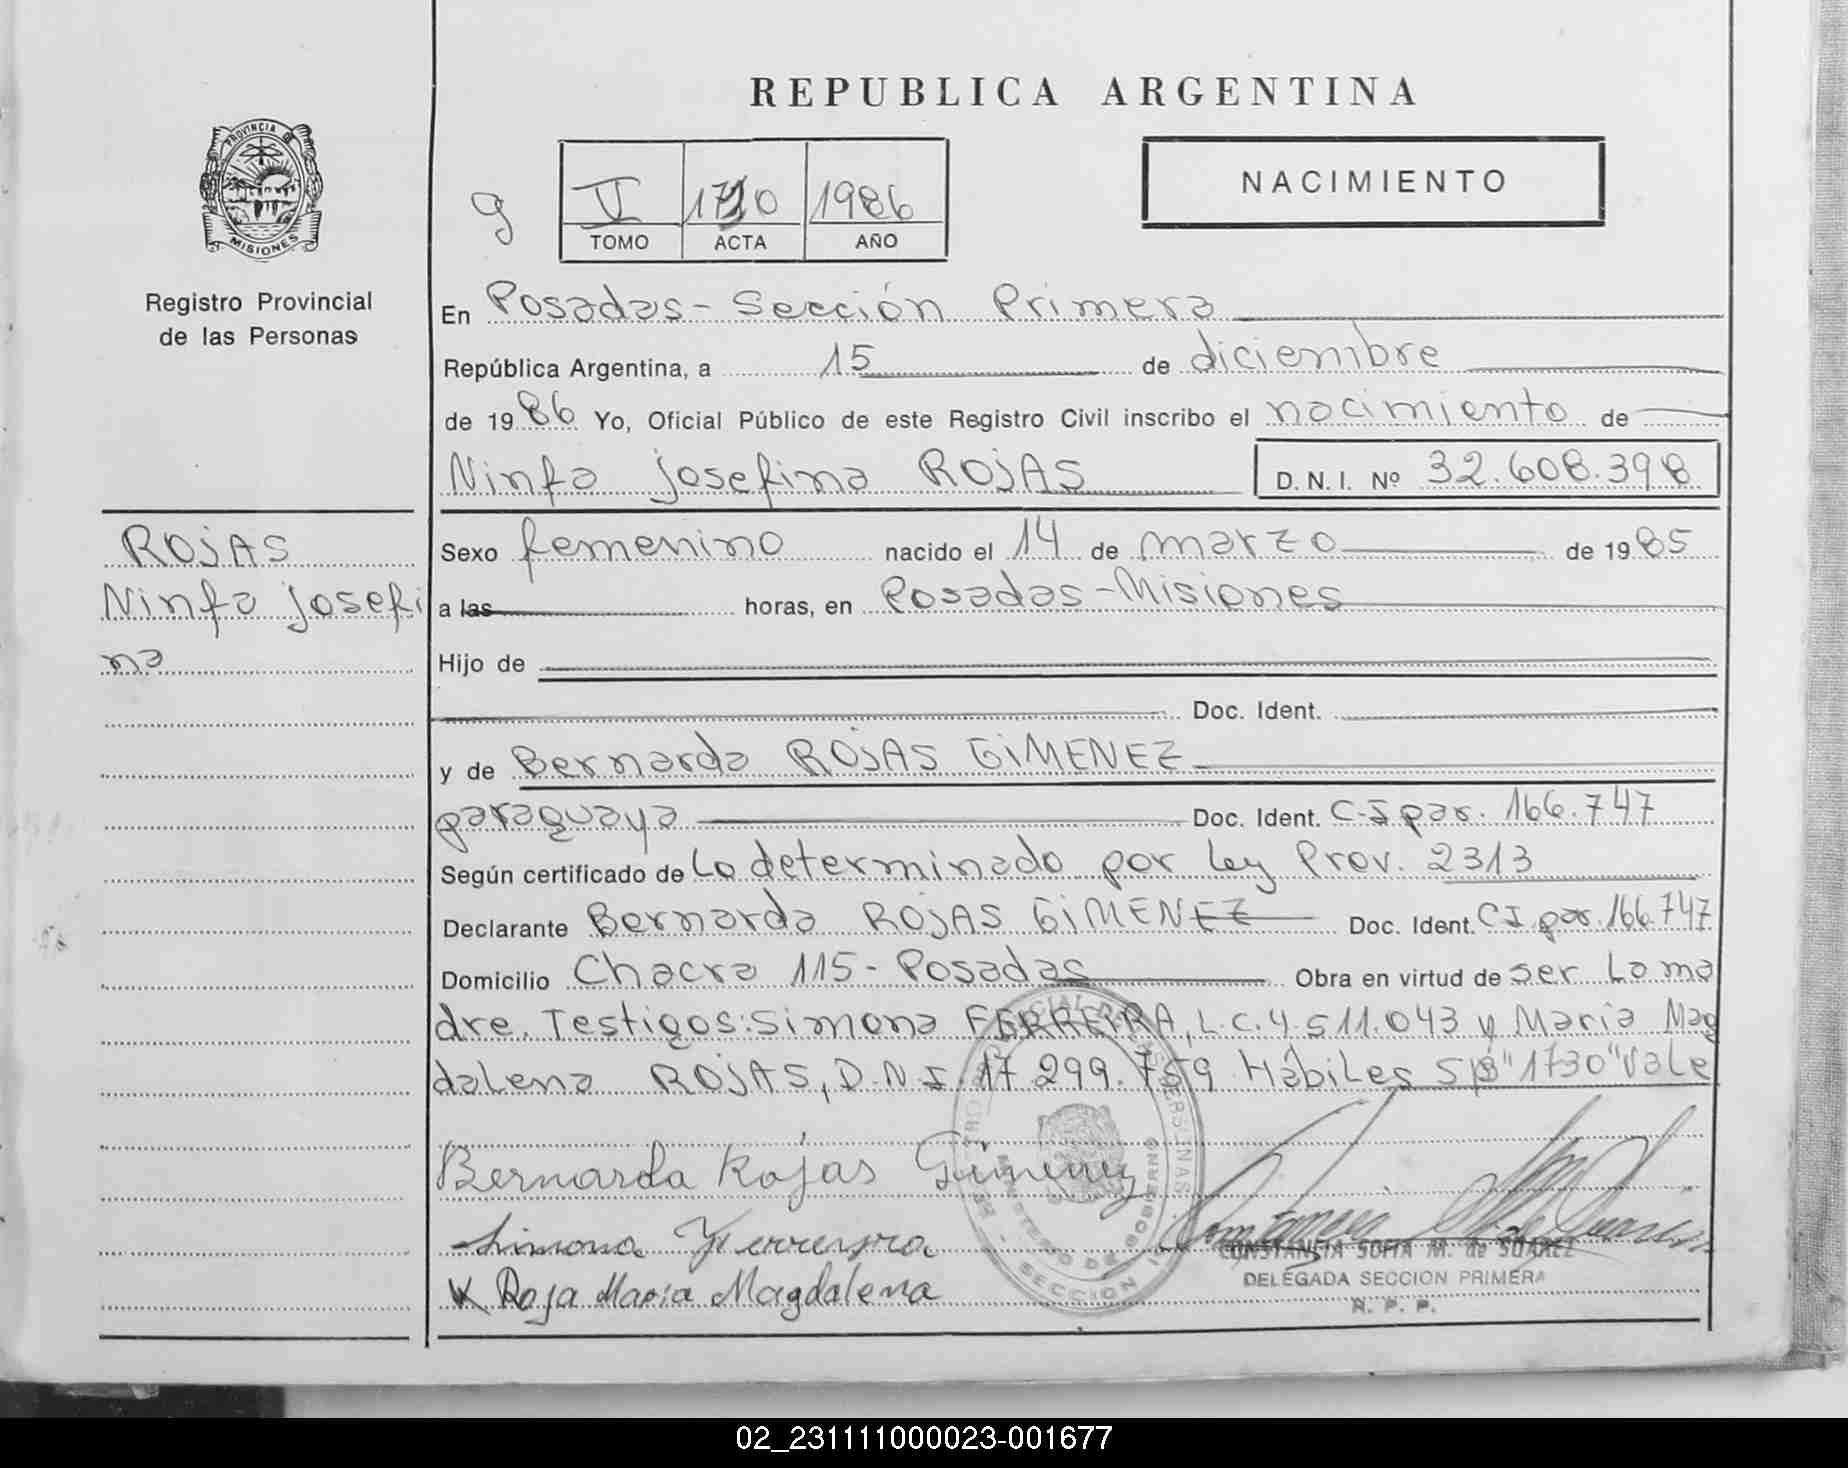 REPUBLICA ARGENTINA
PROVINCIA DE
MISIONES
Registro Provincial
de las Personas
g
V 1730 1986
TOMO ACTA AÑO
NACIMIENTO
En Posadas - Sección Primera
República Argentina, a 15 de diciembre
de 1986 Yo, Oficial Público de este Registro Civil inscribo el nacimiento de
Ninfa Josefina ROJAS D. N. I. Nº 32.608.398
ROJAS
Ninfa Josefi
na
Sexo femenino nacido el 14 de marzo de 1985
a las horas, en Posadas - Misiones
Hijo de
Doc. Ident.
y de Bernarda ROJAS GIMENEZ
paraguaya Doc. Ident. C.I par. 166.747
Según certificado de Lo determinado por Ley Prov. 2313
Declarante Bernarda ROJAS GIMENEZ Doc. Ident. C I. par. 166.747
Domicilio Chacra 115 - Posadas Obra en virtud de ser La ma
dre. Testigos: Simona FERREIRA, L.C. 4.511.043 y María Mag
dalena ROJAS, D.N.I. 17.299.759 Hábiles S/B "1730" Vale
Bernarda Rojas Gimenez
Simona Ferreyra
Roja Maria Magdalena
SECCION 1
MINISTERIO DE GOBIERNO
CONSTANCIA SOFIA M. de SUAREZ
DELEGADA SECCION PRIMERA
R. P. P.
02_231111000023-001677